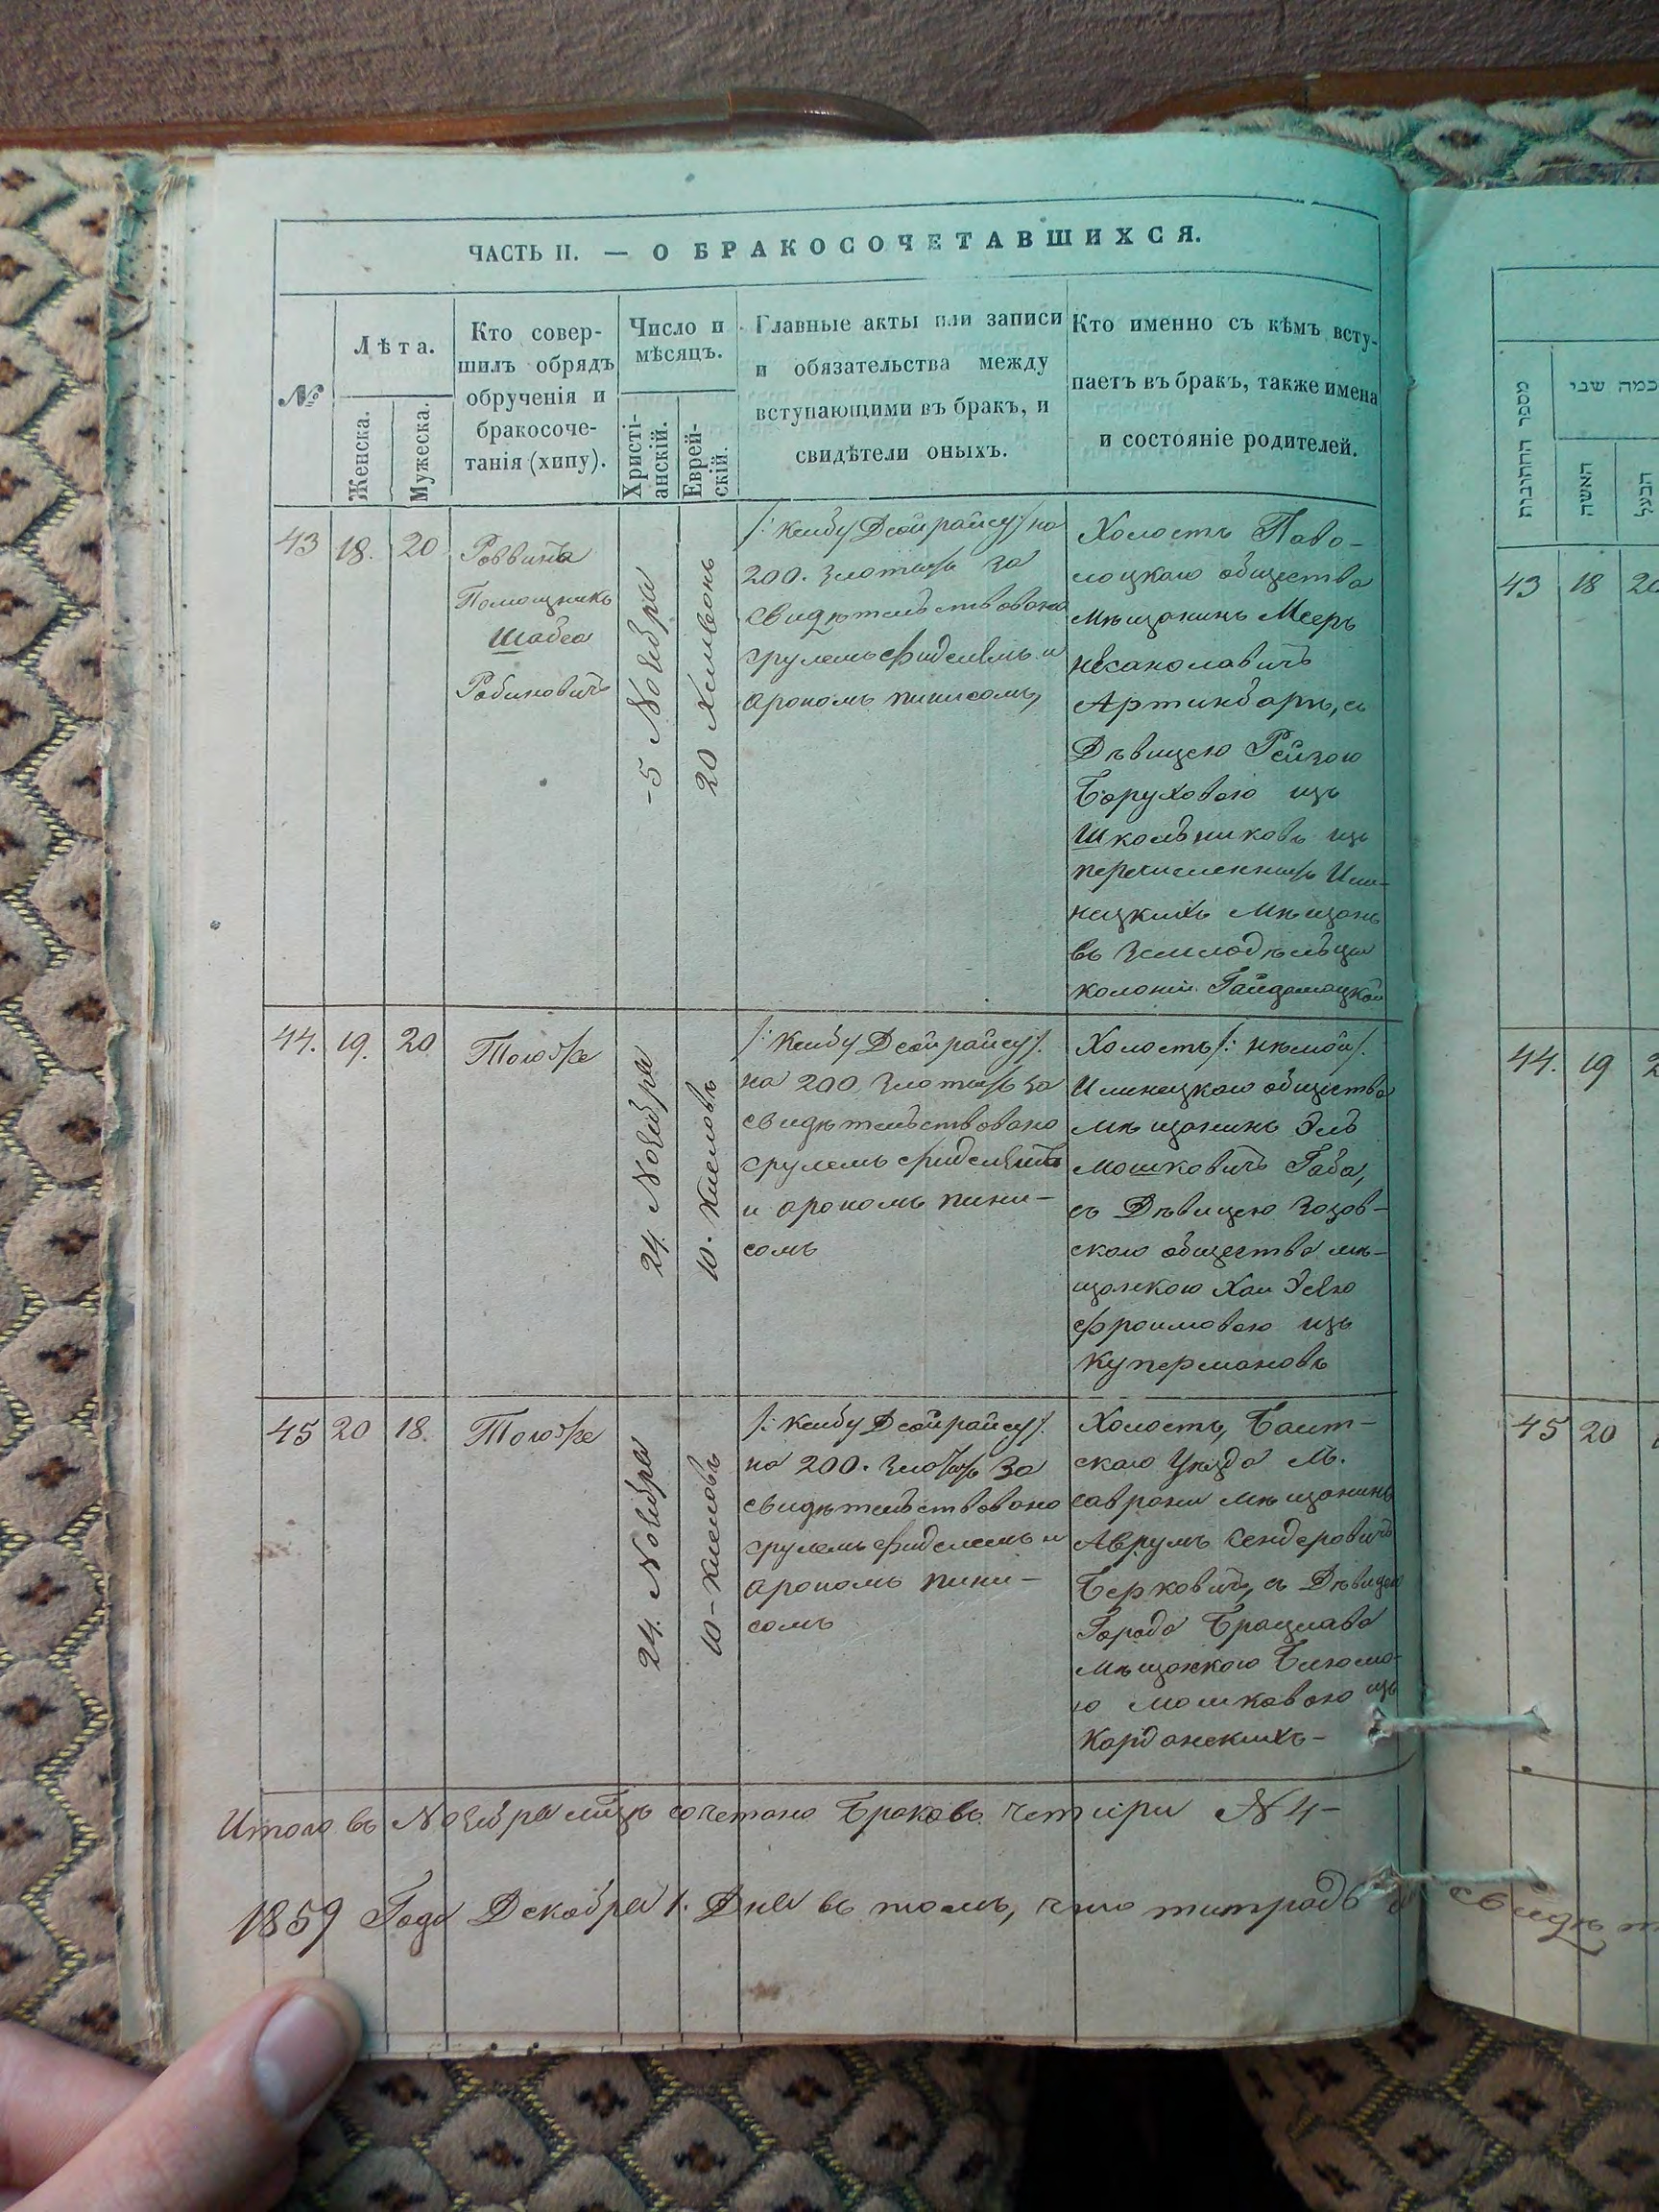 ЧАСТЬ II. — О БРАКОСОЧЕТАВШИХСЯ.
№
Лѣта.
Женска.
Мужеска.
Кто совер-
шилъ обрядъ
обрученія и
бракосоче-
танія (хипу).
Число и
мѣсяцъ.
Христі-
анскій.
Еврей-
скій.
Главные акты или записи
и обязательства между
вступающими въ бракъ, и
свидѣтели оныхъ.
Кто именно съ кѣмъ всту-
паетъ въ бракъ, также имена
и состояніе родителей.
43
18.
20
Раввина
Помощникъ
Шабса
Рабиновичъ
5 Ноября
20 Хешвонъ
/: Ксибу Дсойрайсу :/ на
200. злотыхъ за
свидѣтельствовано
срулемъ фиделемъ и
арономъ пинисомъ,
Холостъ Паво-
лоцкаго общества
мѣщанинъ Мееръ
Артинбарѣ, съ
Дѣвицею Рейзою
Боруховою изъ
Школьниковъ изъ
перечисленныхъ Или-
нецкихъ мѣщанъ
въ Земледѣльцы
колоніи Гайдамацкой
44.
19.
20
Тогоже
24. Ноября
10. Кисловъ
/: Ксибу Дсойрайсу :/.
на 200 злотыхъ за
свидѣтельствовано
срулемъ фиделемъ
и арономъ пини-
сомъ
Холостъ /: нѣмой :/.
Илинецкаго общества
мѣщанинъ Эль
мошковичъ Габа,
съ Дѣвицею Зозов-
скаго общества мѣ-
щанкою Хаи
Фроимовою изъ
Купермановъ
45
20
18.
Тогоже
24. Ноября
10 - Кисловъ
/: Ксибу Дсойрайсу :/.
на 200. злотыхъ за
свидѣтельствовано
срулемъ фиделемъ и
арономъ пини-
сомъ
Холостъ, Балт-
скаго уѣзда м.
саврани мѣщанинъ
Аврумъ Сендеровичъ
Берковичъ, съ Дѣвицею
Города Брацлава
мѣщанкою Блюмо-
ю мошковою изъ
Карданскихъ -
Итого въ Ноябра мцъ сочетано Браковъ четыри N 4 -
1859 Года Декабра 1. Дня въ томъ, что титрадь
מספר החתונות
כמה שני
האשה
הבעל
43
18
44.
19
45
20